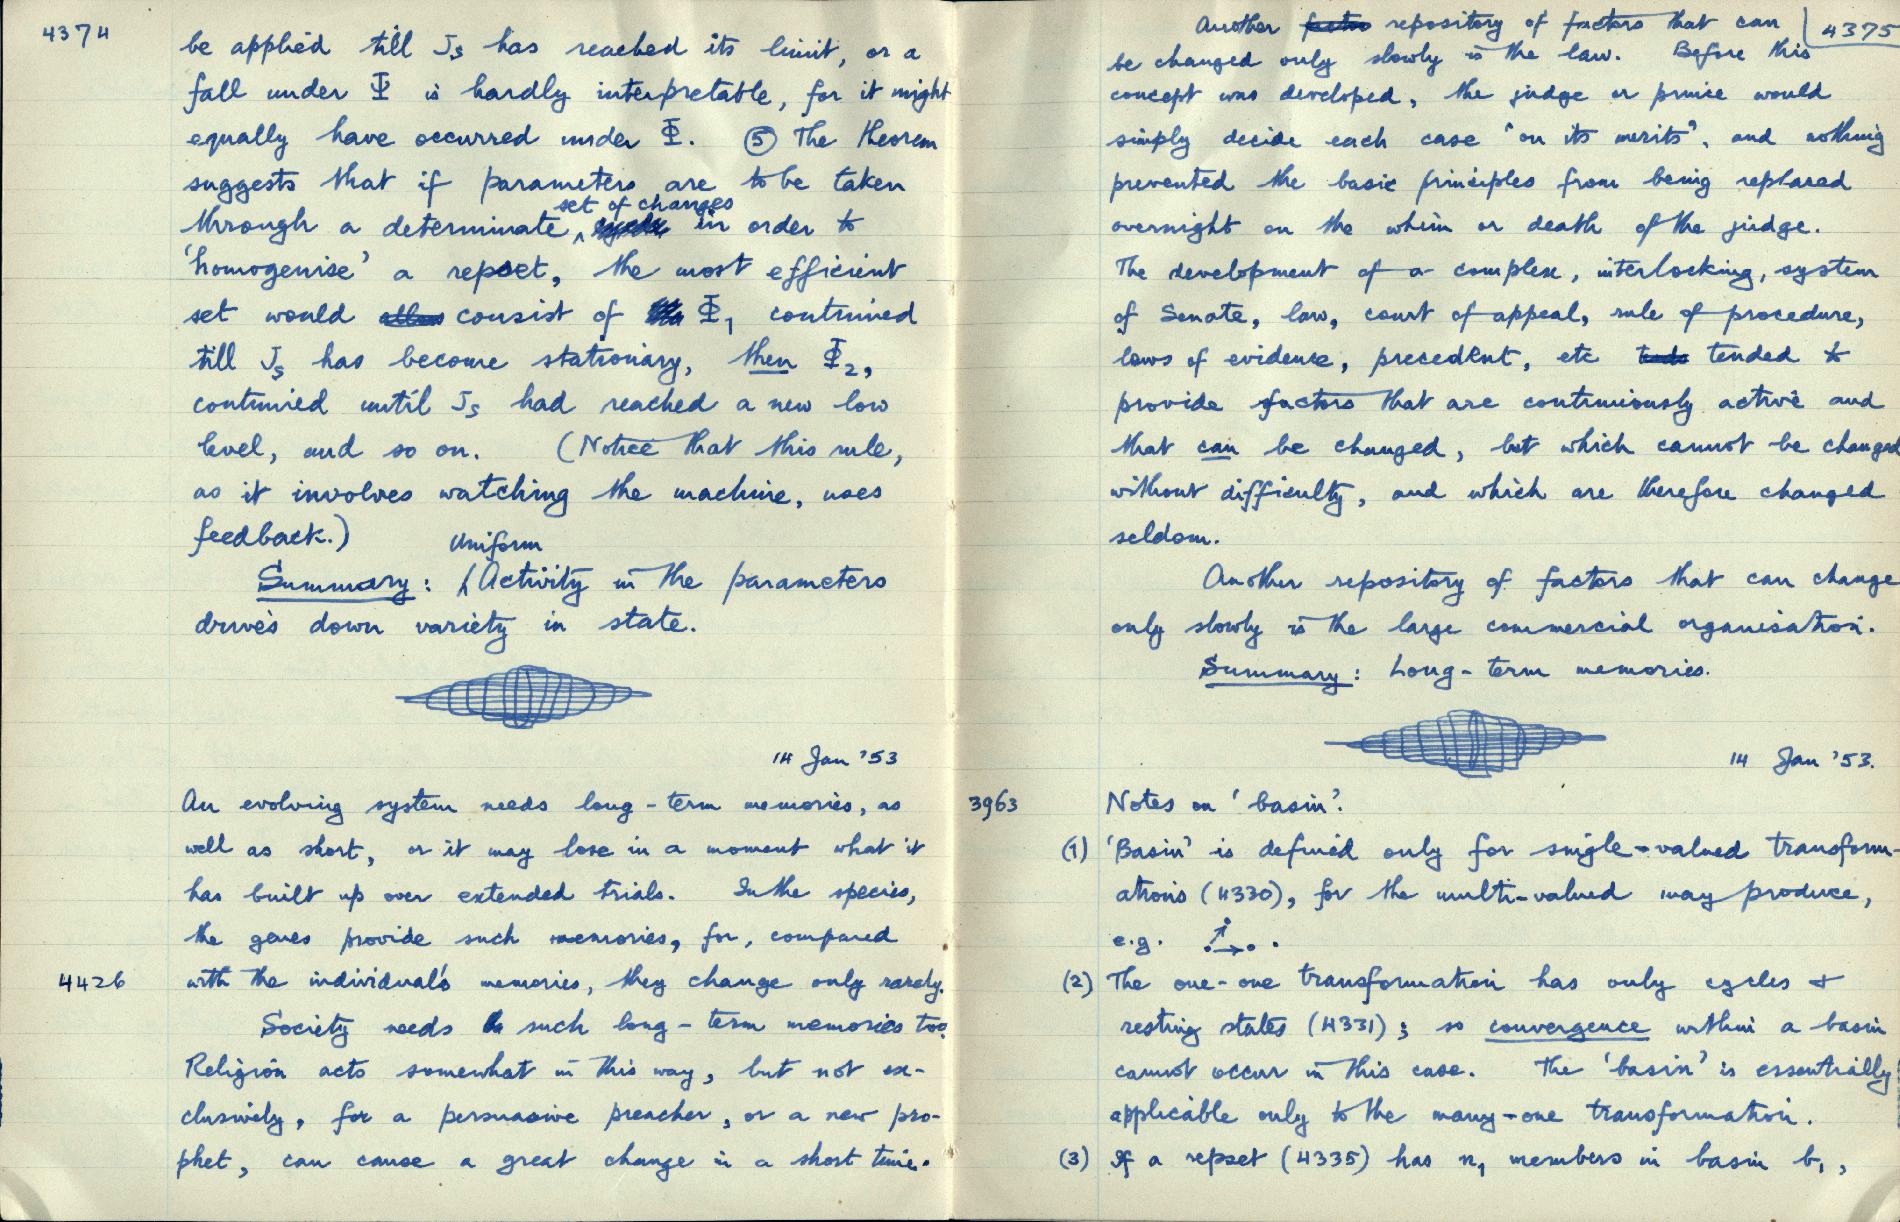 4374
be applied till Js has reached its limit, or a
fall under Φ is hardly interpretable, for it might
equally have occurred under Φ. ⑤ The theorem
suggests that if parameters are to be taken
set of changes
through a determinate ‸ in order to
'homogenise' a repset, the most efficient
set would consist of Φ₁ continued
till Js has become stationary, then Φ₂,
continued until Js had reached a new low
level, and so on. (Notice that this rule,
as it involves watching the machine, uses
feedback.)
Uniform
Summary: Activity in the parameters
drives down variety in state.
14 Jan '53
An evolving system needs long-term memories, as
well as short, or it may lose in a moment what it
has built up over extended trials. In the species,
the genes provide such memories, for, compared
4426 with the individual's memories, they change only rarely.
Society needs such long-term memories too.
Religion acts somewhat in this way, but not ex-
clusively, for a persuasive preacher, or a new pro-
phet, can cause a great change in a short time.
4375
Another repository of factors that can
be changed only slowly is the law. Before this
concept was developed, the judge or prince would
simply decide each case "on its merits", and nothing
prevented the basic principles from being replaced
overnight on the whim or death of the judge.
The development of a complex, interlocking, system
of Senate, law, court of appeal, rule of procedure,
laws of evidence, precedent, etc tended to
provide factors that are continuously active and
that can be changed, but which cannot be changed
without difficulty, and which are therefore changed
seldom.
Another repository of factors that can change
only slowly is the large commercial organisation.
Summary: Long-term memories.
14 Jan '53.
3963 Notes on 'basin'.
(1) 'Basin' is defined only for single-valued transform-
ations (4330), for the multi-valued may produce,
e.g.
(2) The one-one transformation has only cycles +
resting states (4331); so convergence within a basin
cannot occur in this case. The 'basin' is essentially
applicable only to the many-one transformation.
(3) If a repset (4335) has n₁ members in basin b₁,